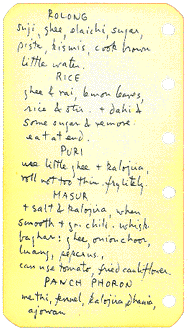 ROLONG
suji, ghee, elaichi, sugar,
pista, kismis, cook brown
little water.
RICE
ghee & rai, lemon leaves,
rice & stir. + dahi &
some sugar & remove.
eat at end.
PURI
use little ghee + kalojira,
roll not too thin. fry lightly.
MASUR
+ salt & kalojira, when
smooth + gr. chili. whisk.
baghar: ghee, onion choor,
luang,
can use tomato, fried cauliflower.
PANCH PHORON
methi, fennel, kalojira dhania,
ajowan.